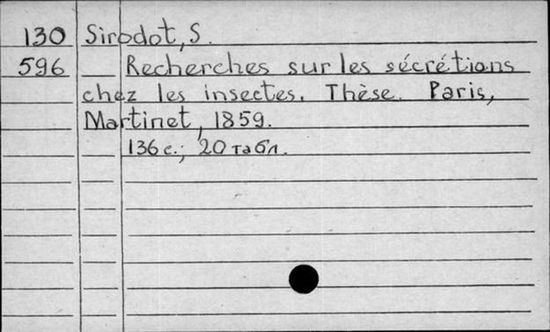 130 Sirodot, S.
596 Recherches sur les sécrétions
chez les insectes. Thèse. Paris,
Martinet, 1859.
136 с.; 20 табл.